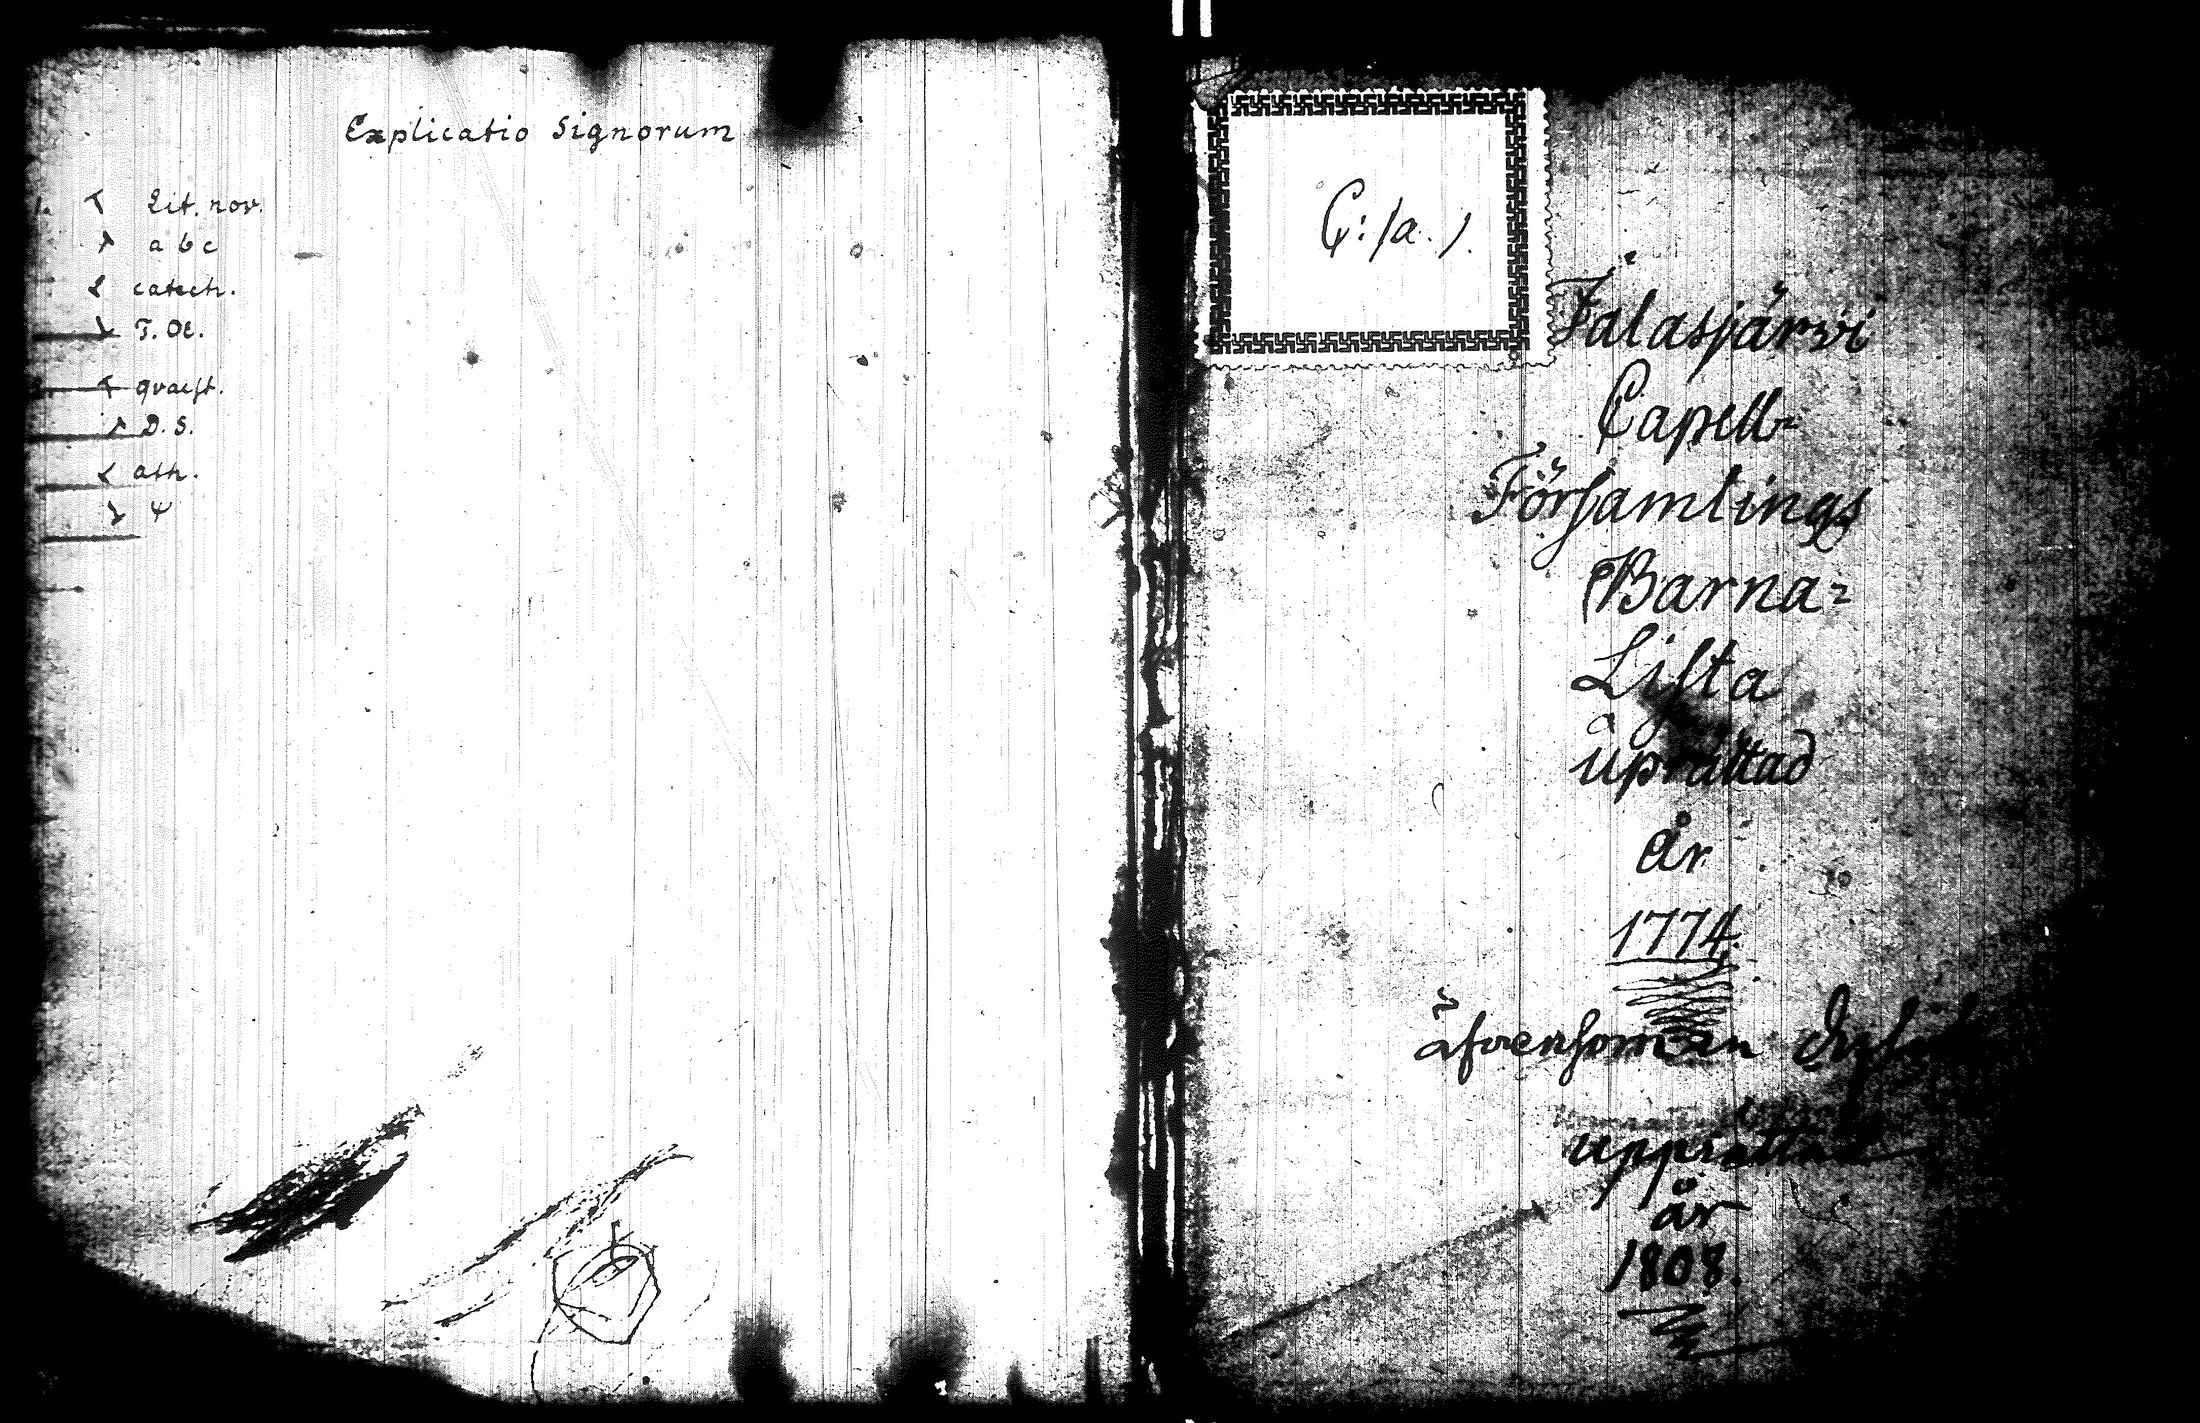 Explicatio Signorum
Lit. nov.
a b c
catech.
T. Oe.
qvaest.
D. S.
ath.
Ψ
C:/a. 1.
Jalasjärwi
Capell-
Församlings
Barna-
Lista
uprättad
år
1774.
äfvensom en
upprättad
år
1808.